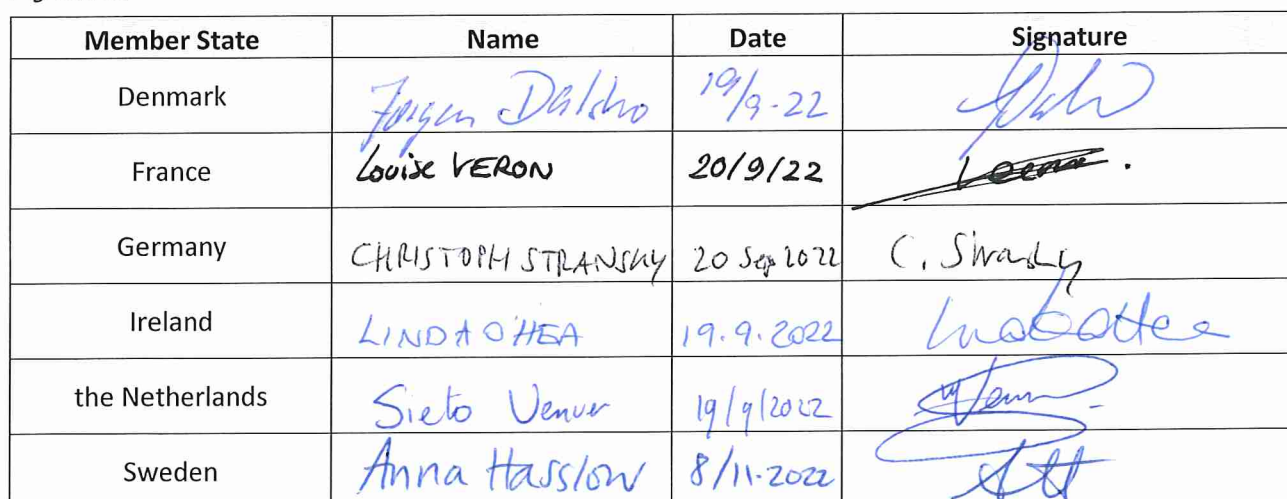 Member State Name Date Signature
Denmark Jørgen Dalskov 19/9-22
France Louise VERON 20/9/22
Germany CHRISTOPH STRANSKY 20 Sep 2022 C. Stransky
Ireland LINDA O'HEA 19.9.2022
the Netherlands Sieto Verver 19/9/2022
Sweden Anna Hasslow 8/11-2022